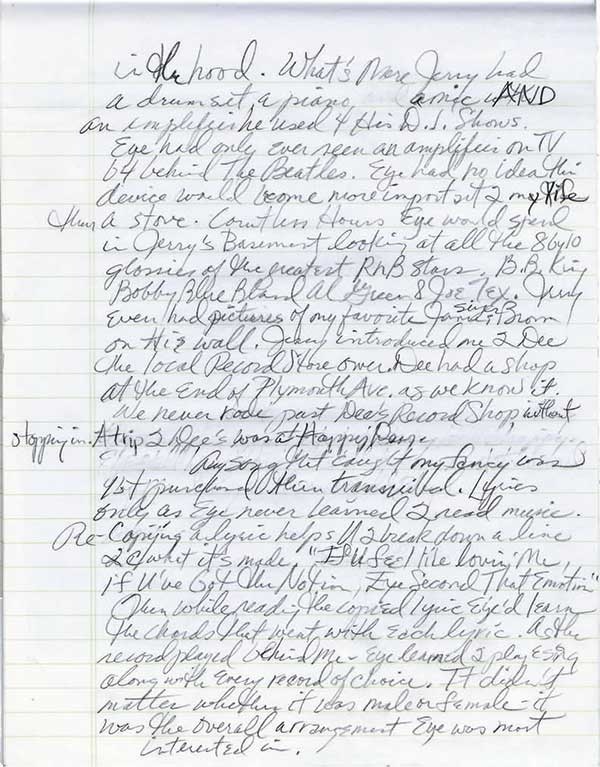 in the hood. What's More Jerry had
a drumset, a piano, a mic AND
an amplifier he used 4 His D.J. Shows.
Eye had only ever seen an amplifier on TV
b4 behind The Beatles. Eye had no idea this
device would become more important 2 my life
than a stove. Countless Hours Eye would spend
in Jerry's Basement looking at all the 8by10
glossies of the greatest RnB Stars. B.B. King
Bobby Blue Bland Al Green & Joe Tex. Jerry
even had pictures of my favorite singer James Brown
on His wall. Jerry introduced me 2 Dee
the local Record Store owner. Dee had a shop
at the End of Plymouth Ave. as we know it
We never rode past Dee's Record Shop without
stopping in. A trip 2 Dee's was a Happy Day.
Any song that caught my fancy was
1st purchased then transcribed. Lyrics
only as Eye never learned 2 read music.
Re-Copying a lyric helps U 2 break down a line
2 C what it's made, "If U feel like lovin' Me,
if U've Got the Notion, Eye Second That Emotion"
Then while reading the copied lyric Eye'd learn
the chords that went with Each lyric. As the
record played behind Me - Eye learned 2 play & sing
along with Every record of choice. It didn't
matter whether it was male or female - it
was the overall arrangement Eye was most
interested in.